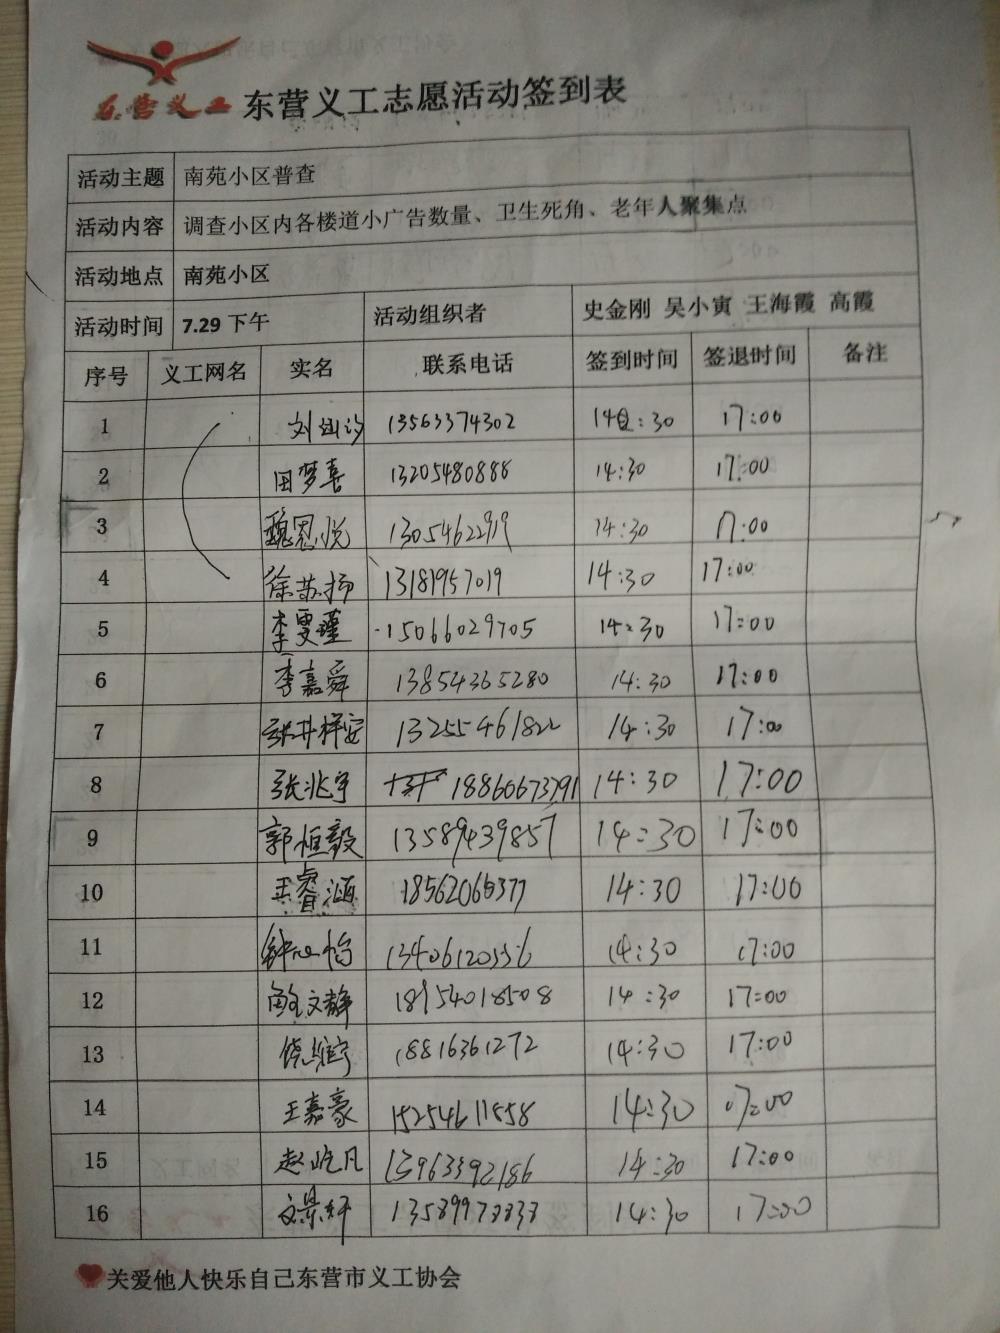 东营义工 东营义工志愿活动签到表
活动主题 南苑小区普查
活动内容 调查小区内各楼道小广告数量、卫生死角、老年人聚集点
活动地点 南苑小区
活动时间 7.29下午 活动组织者 史金刚 吴小寅 王海霞 高霞
序号 义工网名 实名 联系电话 签到时间 签退时间 备注
1 刘灿汐 13563374302 14:30 17:00
2 田梦喜 13205480888 14:30 17:00
3 魏恩悦 13054622919 14:30 17:00
4 徐苏扬 13181957019 14:30 17:00
5 李雯瑾 15066029705 14:30 17:00
6 李嘉舜 13854365280 14:30 17:00
7 张井梓安 13255461822 14:30 17:00
8 张兆宇 18860673791 14:30 17:00
9 郭恒毅 13589439857 14:30 17:00
10 王睿涵 14:30 17:00
11 钟心怡 13406120336 14:30 17:00
12 文静 18954018508 14:30 17:00
13 饶维宇 18816361272 14:30 17:00
14 王嘉豪 15254611558 14:30 17:00
15 赵屹凡 13963392186 14:30 17:00
16 文景轩 13589973833 14:30 17:00
关爱他人快乐自己东营市义工协会